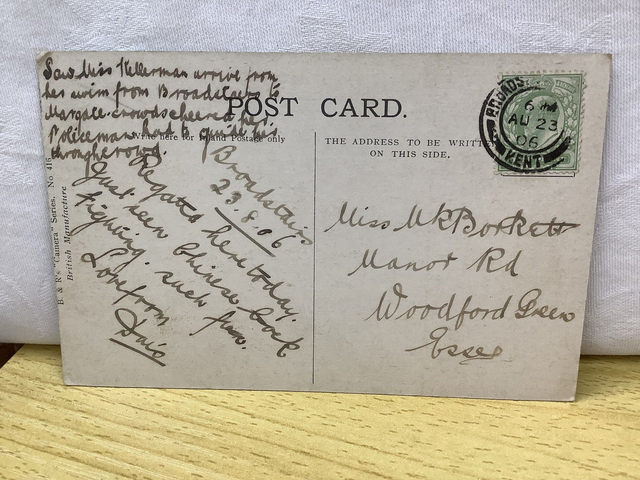 Saw Miss Kellerman arrive from
her swim from Broadstairs to
Margate. crowds cheered her.
Policeman had to guide his
through crowd.
POST CARD.
Write here for Inland Postage only
THE ADDRESS TO BE WRITTE
ON THIS SIDE.
B. & R's "Camera" Series. No 416
British Manufacture
Broadstairs
23.8.06
Regatta here today.
Just seen Chinese Cock
Fighting. such fun.
Love from
Miss M K Borkett
Manor Rd
Woodford Green
Essex
BROADS
6 PM
AU 23
06
KENT